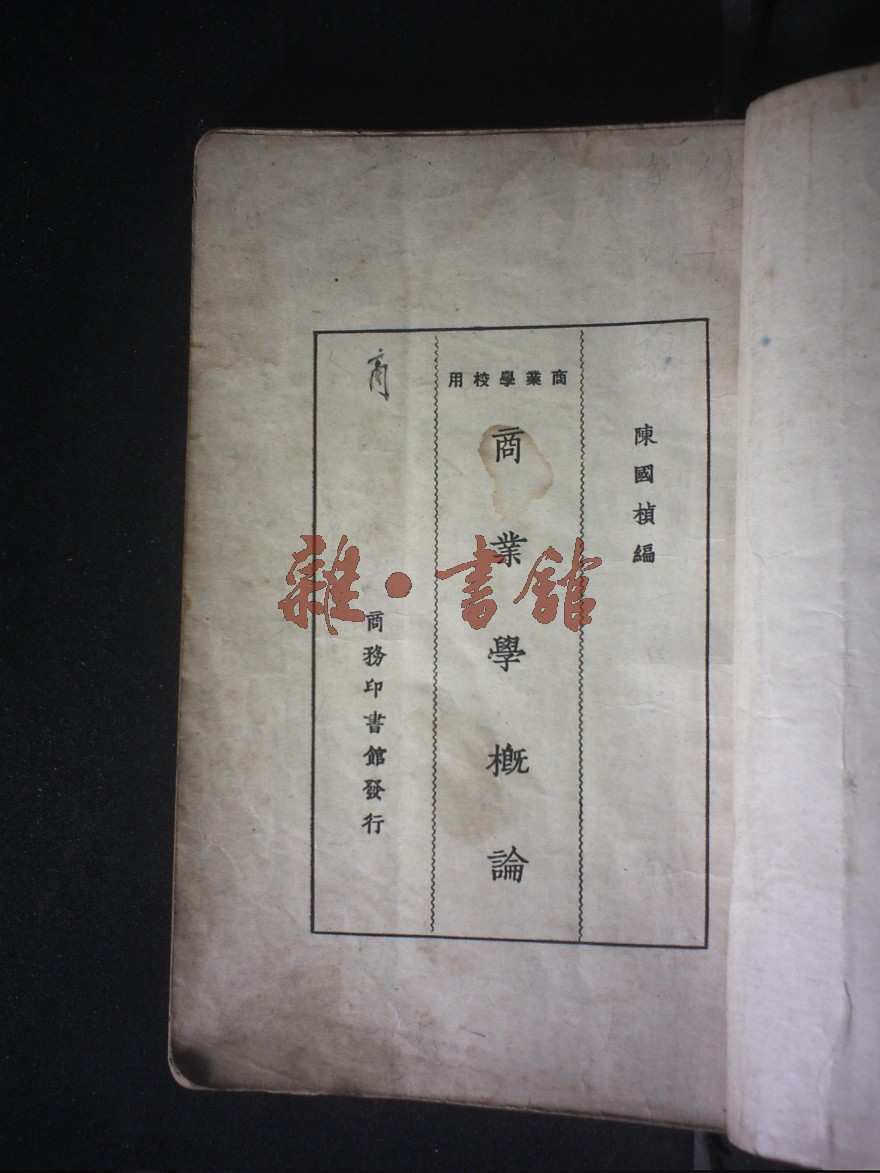 陳國楨編
商業學校用
商業學概論
商
商務印書館發行
雜·書館